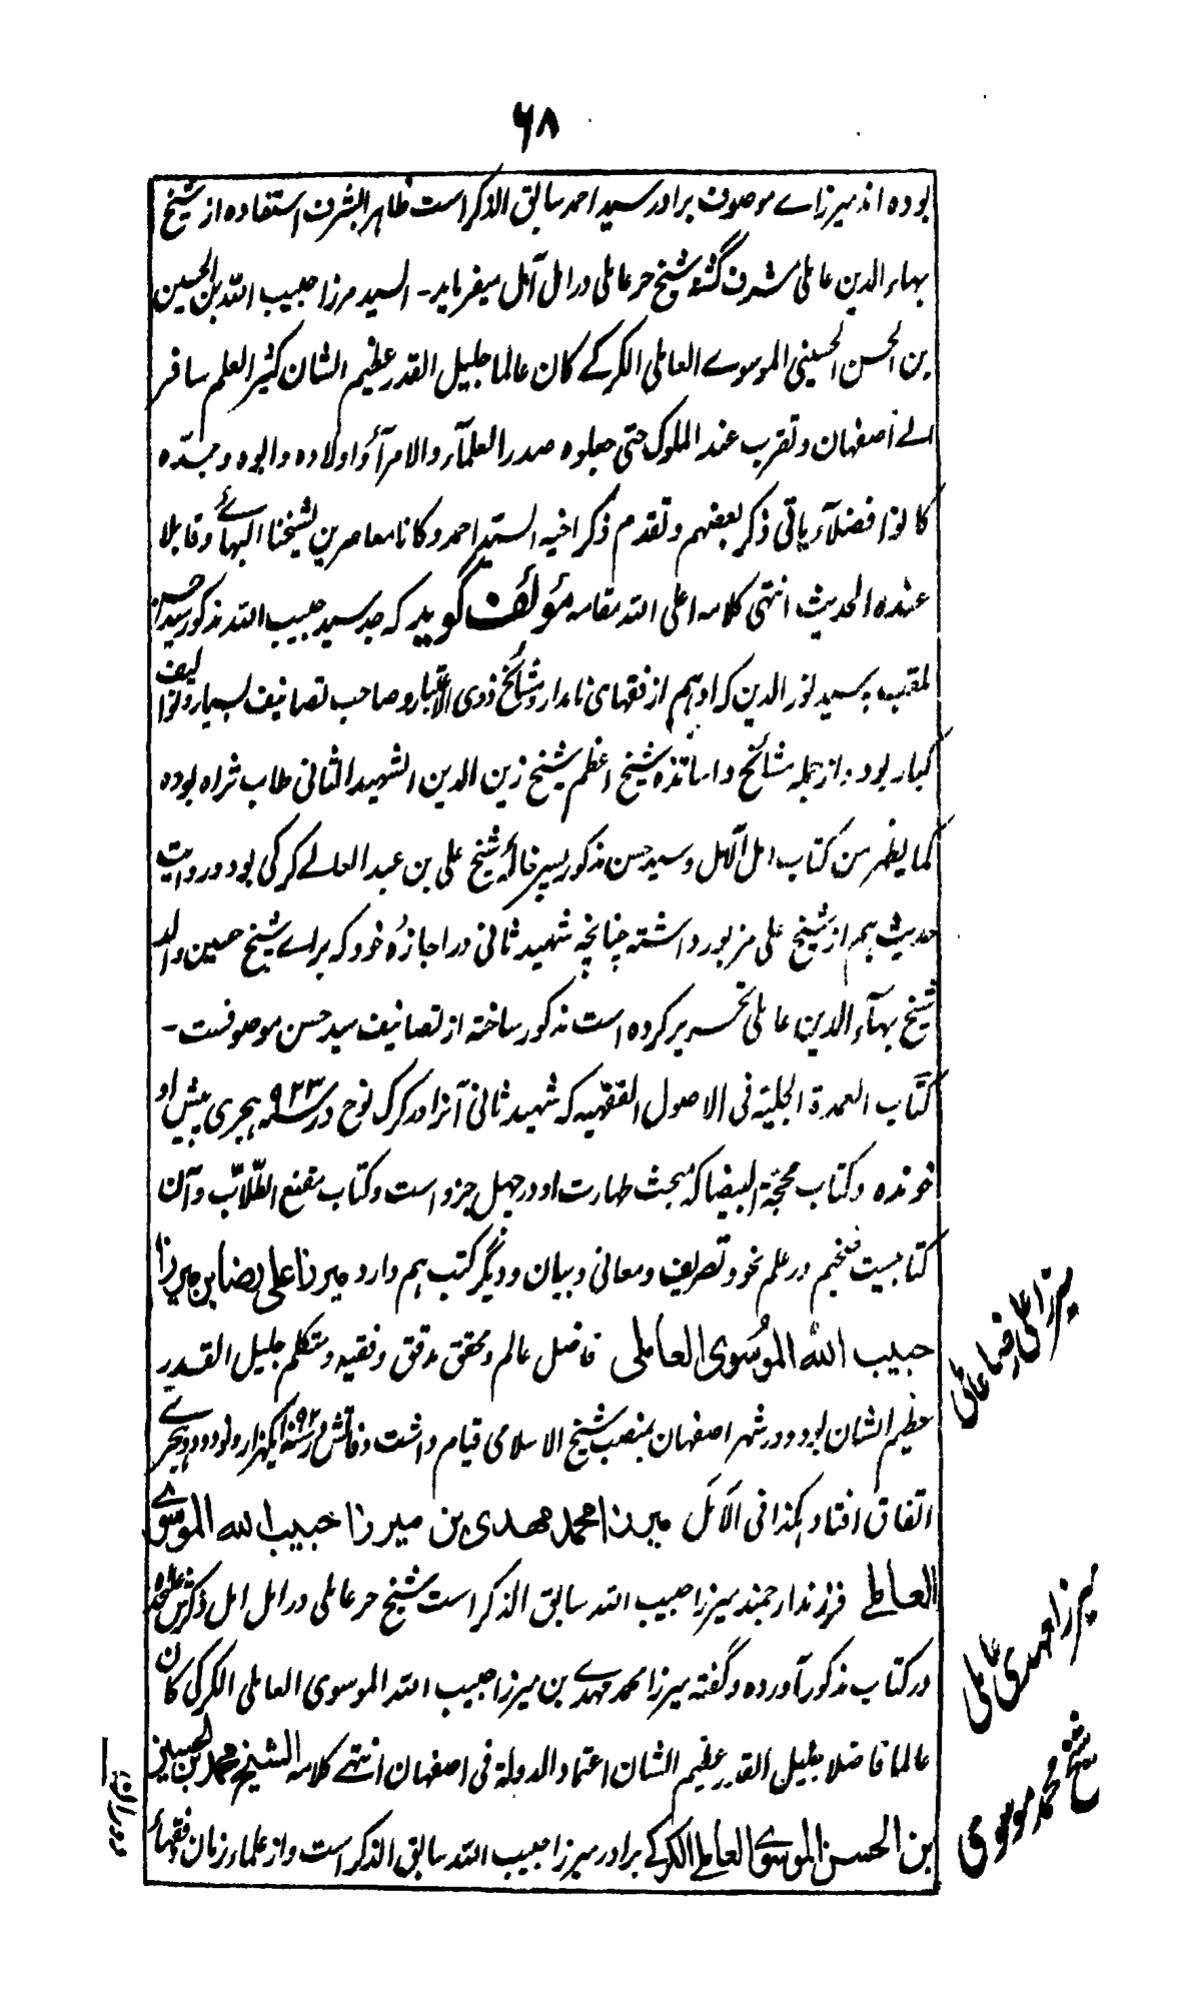 ۶۸
بوده اند میرزاے موصوف برادر سید احمد سابق الذکر است ظاہرا بشرف استفاده از شیخ
بہاء الدین عاملی مشرف گشتہ شیخ حر عاملی در امل آمل میفرماید - السید مرزا حبیب اللہ بن الحسین
بن الحسن الحسینی الموسوے العاملی الکرکے کان عالما جلیل القدر عظیم الشان کثیر العلم سافر
الے اصفہان و تقرب عند الملوک حتی جعلوہ صدر العلمآء والامرآء واولادہ وابوہ وجدّہ
کانوا فضلآء یاتی ذکر بعضہم وتقدم ذکر اخیہ السید احمد وکانا معاصرین لشیخنا البہائےؑ وقابلا
عندہ الحدیث انتہی کلامہ اعلی اللہ مقامہ مؤلف گوید کہ جد سید حبیب اللہ مذکور سید حسن
ملقب بہ سید نور الدین کہ او ہم از فقہای نامدار و مشائخ ذوی الاعتبار و صاحب تصانیف بسیار و توالیف
کبار بود و از جملہ مشائخ و اساتذہ شیخ اعظم شیخ زین الدین الشہید الثانی طاب ثراہ بوده
کما یظہر من کتاب امل الآمل و سید حسن مذکور پسر خالۂ شیخ علی بن عبد العالے کرکی بود و روایت
حدیث ہم از شیخ علی مزبور داشتہ چنانچہ شہید ثانی در اجازۂ خود کہ براے شیخ حسین والد
شیخ بہآء الدین عاملی تحریر کردہ است مذکور ساختہ از تصانیف سید حسن موصوفست -
کتاب العمدة الجلیة فی الاصول الفقہیہ کہ شہید ثانی آنرا در کرک نوح در سنہ ۹۲۳ ہجری پیش او
خوندہ و کتاب محجة البیضا کہ مبحث طہارت او در چہل جزو است و کتاب مقنع الطلاب و آن
کتابیست ضخیم در علم نحو و تصریف و معانی و بیان و دیگر کتب ہم دارد میرزا علی رضا بن میرزا
حبیب اللہ الموسوی العاملی فاضل عالم و محقق مدقق و فقیہ و متکلم جلیل القدر
عظیم الشان بود و در شہر اصفہان بمنصب شیخ الاسلامی قیام داشت وفاتش در سنہ ۱۰۹۲ یکہزار و نود و دو ہجرے
اتفاق افتاد ہکذا فی الآمل میرزا محمد مہدی بن میرزا حبیب اللہ الموسوے
العاملے فرزند ارجمند میرزا حبیب اللہ سابق الذکر است شیخ حر عاملی در امل امل ذکرش
در کتاب مذکور آورده و گفتہ میرزا محمد مہدے بن میرزا حبیب اللہ الموسوی العاملی الکرکی کان
عالما فاضلا جلیل القدر عظیم الشان اعتماد الدولة فی اصفہان انتہے کلامہ الشیخ محمد بن الحسین
بن الحسن الموسوی العاملے الکرکے برادر میرزا حبیب اللہ سابق الذکر است و از علماء زمان و فقہاے
میرزا علی رضا عاملی
میرزا مہدی عاملی
شیخ محمد موسوی
دوران